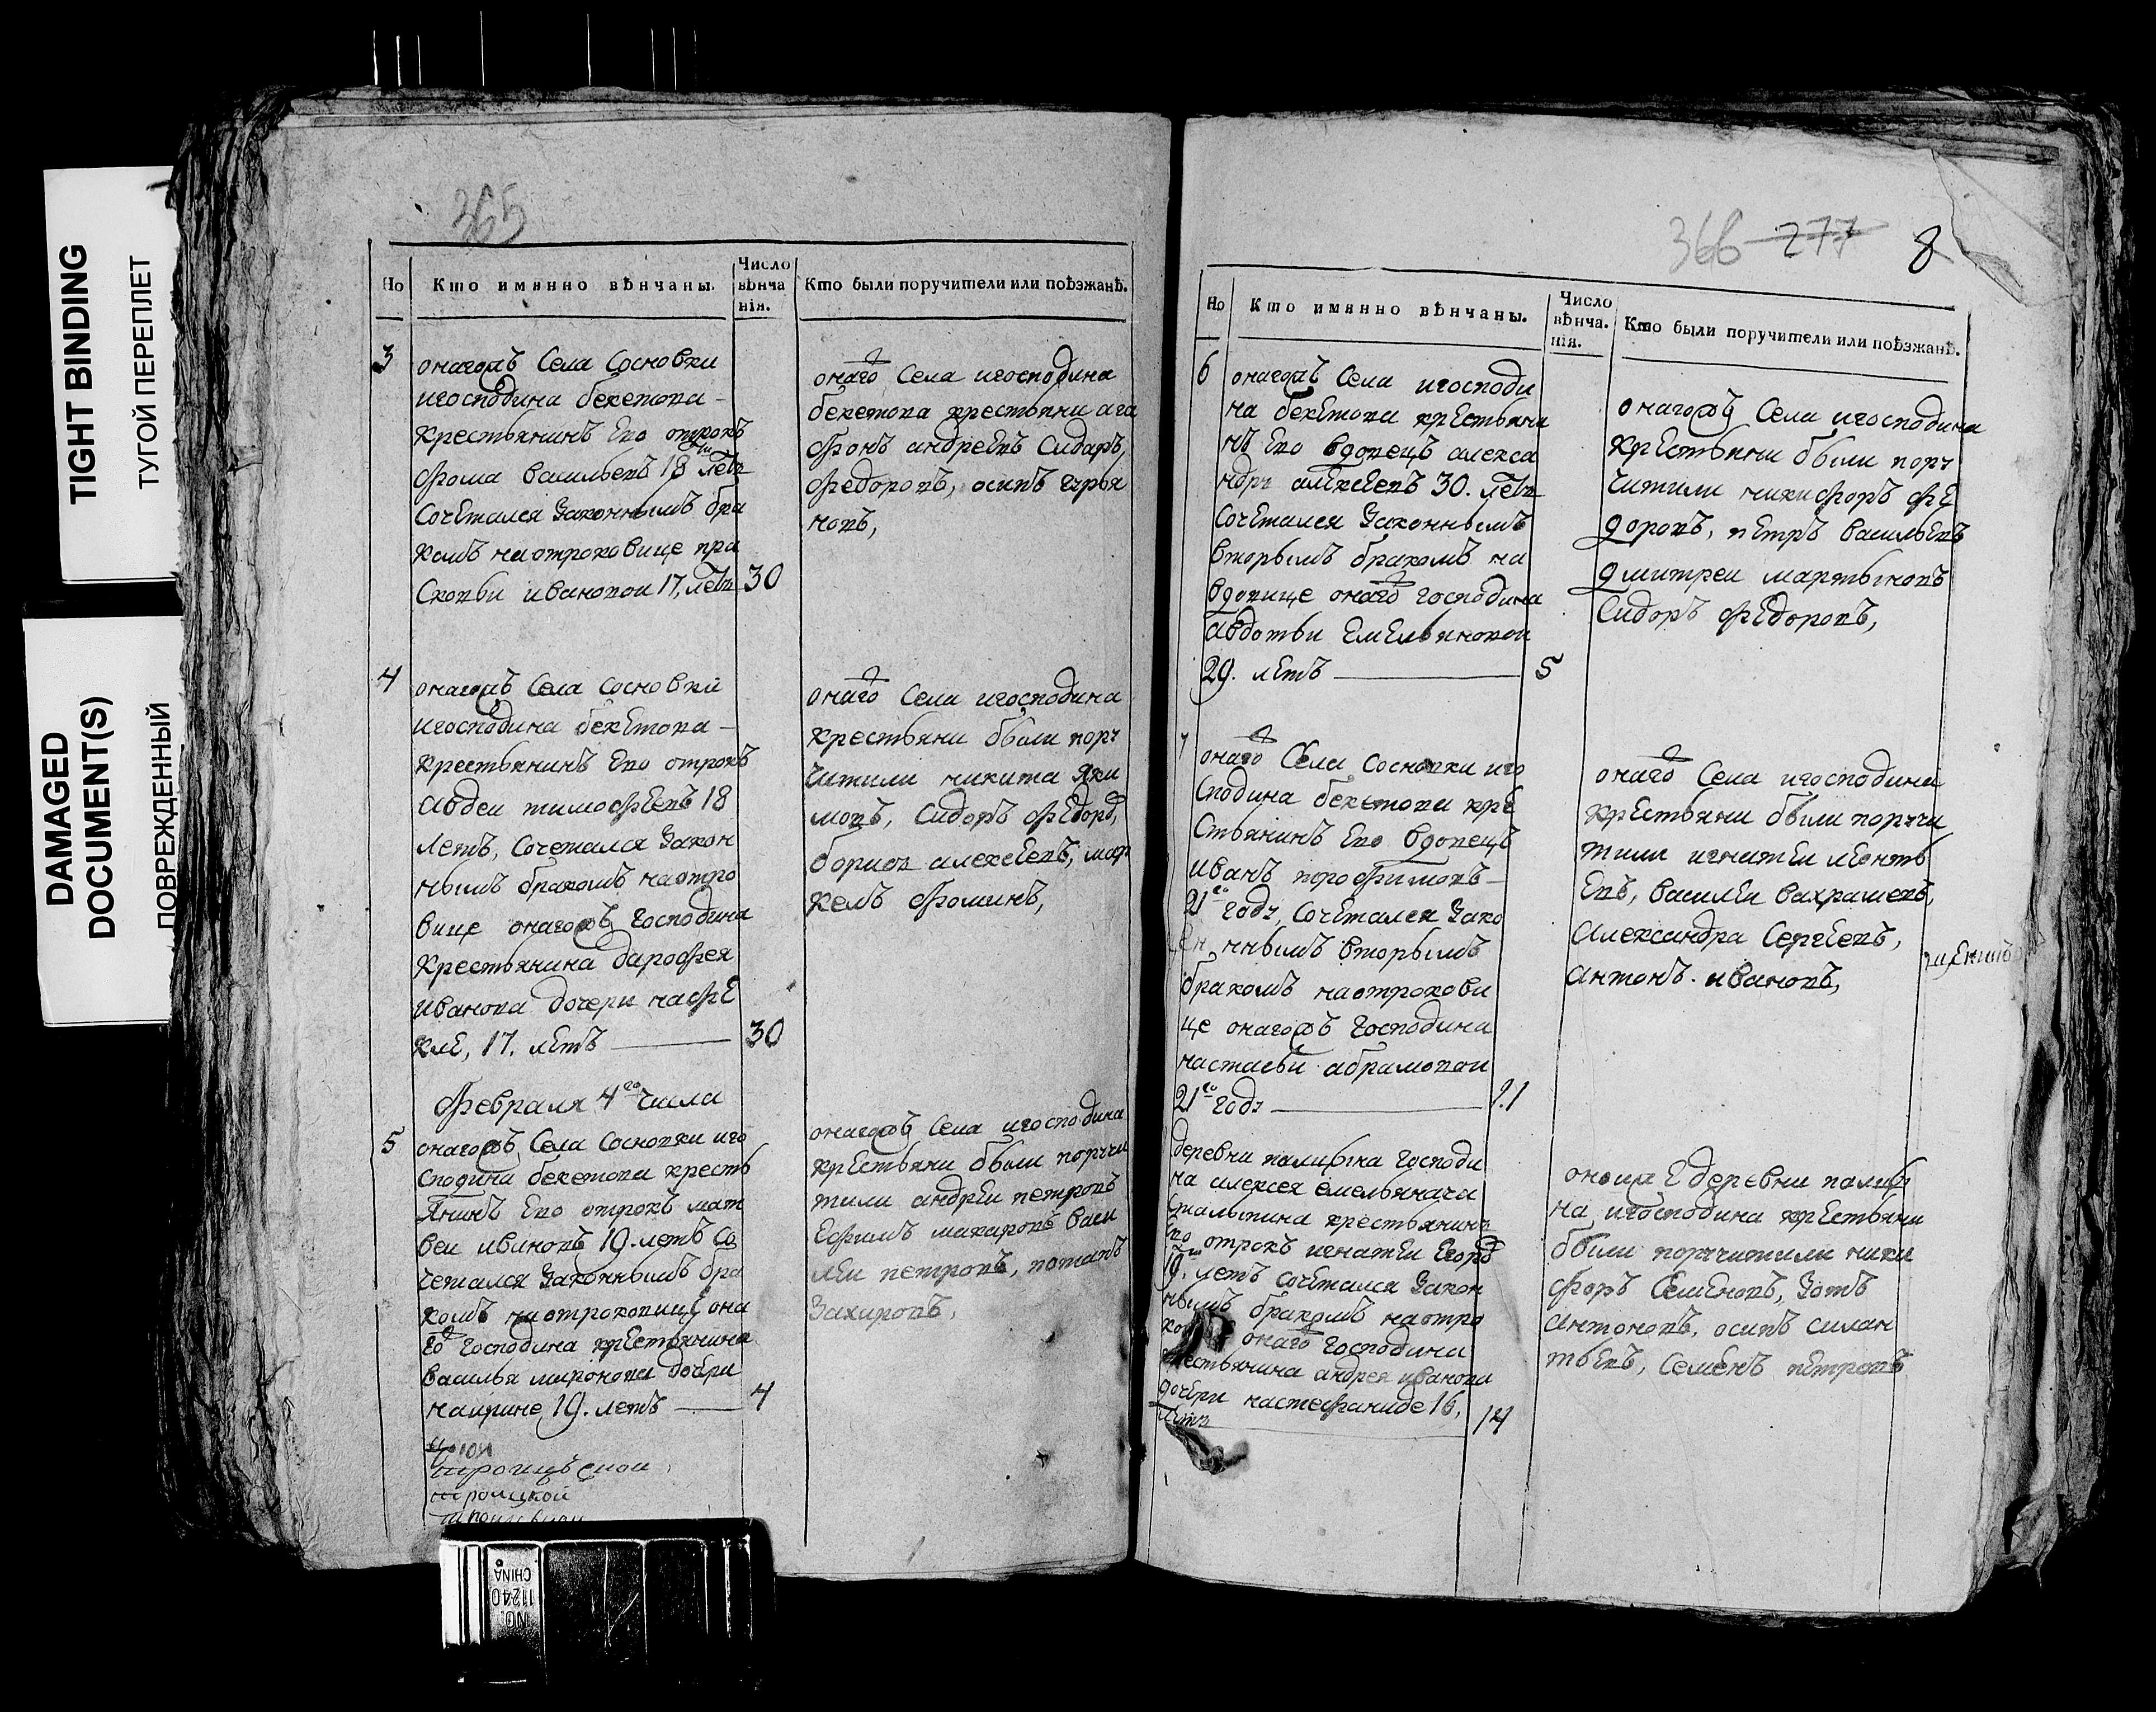 TIGHT BINDING
ТУГОЙ ПЕРЕПЛЕТ
DAMAGED
DOCUMENT(S)
ПОВРЕЖДЕННЫЙ
365
Но
Кто имянно вѣнчаны.
Число
вѣнча
нія.
Кто были поручители или поѣзжанѣ.
3
онагожъ Села Сосновки
игосподина бекетова
крестьянинъ Ево отрокъ
фома васильевъ 18 летъ
Сочетался Законнымъ бра
комъ наотроковице пра
Сковьи ивановой 17, летъ 30
онаго Села игосподина
бекетова крестьяни ага
фонъ андреевъ Сидаръ,
федоровъ, осипъ гурья
новъ,
4
онагожъ Села Сосновки
игосподина бекетова
крестьянинъ Ево отрокъ
авдеи тимофеевъ 18
летъ, Сочетался Закон
нымъ бракомъ наотро
вице онагожъ Господина
Крестьянина дарофея
иванова дочери нафе
кле, 17. летъ 30
онаго Села игосподина
крестьяни были пору
чители никита Яки
мовъ, Сидоръ федоро,
борисъ алексеевъ, мар
келъ фоминъ,
февраля 4го числа
5
онагожъ Села Сосновки иго
сподина бекетова кресть
Янинъ Ево отрокъ мат
веи ивановъ 19. летъ Со
четался Законнымъ бра
комъ наотроковице она
го Господина крестьянина
василья миронова дочери
наирине 19. летъ 4
онагожъ Села игосподина
крестьяни были поручи
тили андреи петровъ
Ефимъ макаровъ васи
леи петровъ, потапъ
Захаровъ,
троицкой
366 277 8
Но
Кто имянно вѣнчаны.
Число
вѣнча.
нія.
Кто были поручители или поѣзжанѣ.
6
онагожъ Села игосподи
на бекетова крестьяни
нъ Ево вдовецъ алекса
ндръ алексеевъ 30. летъ
Сочетался Законнымъ
вторымъ бракомъ на
вдовице онаго господина
авдотьи Емельяновои
29. летъ 5
онагожъ Села игосподина
крестьяни были пору
чители никифоръ фе
доровъ, петръ васильевъ
дмитреи мартыновъ
Сидоръ федоровъ,
7
онаго Села Сосновки иго
сподина бекетова кре
стьянинъ Ево вдовецъ
иванъ порофимовъ
21го году, Сочетался Зако
ннымъ вторымъ
бракомъ наотрокови
це онагожъ Господина
настасьи абрамовои
21го году 11
онаго Села игосподина
крестьяни были поручи
тили игнатеи леонть
Евъ, василеи вахрамеевъ,
Александра Сергеевъ,
антонъ. ивановъ,
деревни
Господи
на алексея емельянача
крестьянинъ
Ево отрокъ игнатеи Егоро
19. летъ сочетался Закон
нымъ бракомъ наотро
онаго Господина
крестьянина андрея иванова
дочери настефаниде 16,
летъ 14
деревни
на игосподина крестьяни
были поручители ники
форъ Семеновъ, Зотъ
антоновъ, осипъ силан
тьевъ, Семенъ петровъ
NO.
11240
CHINA